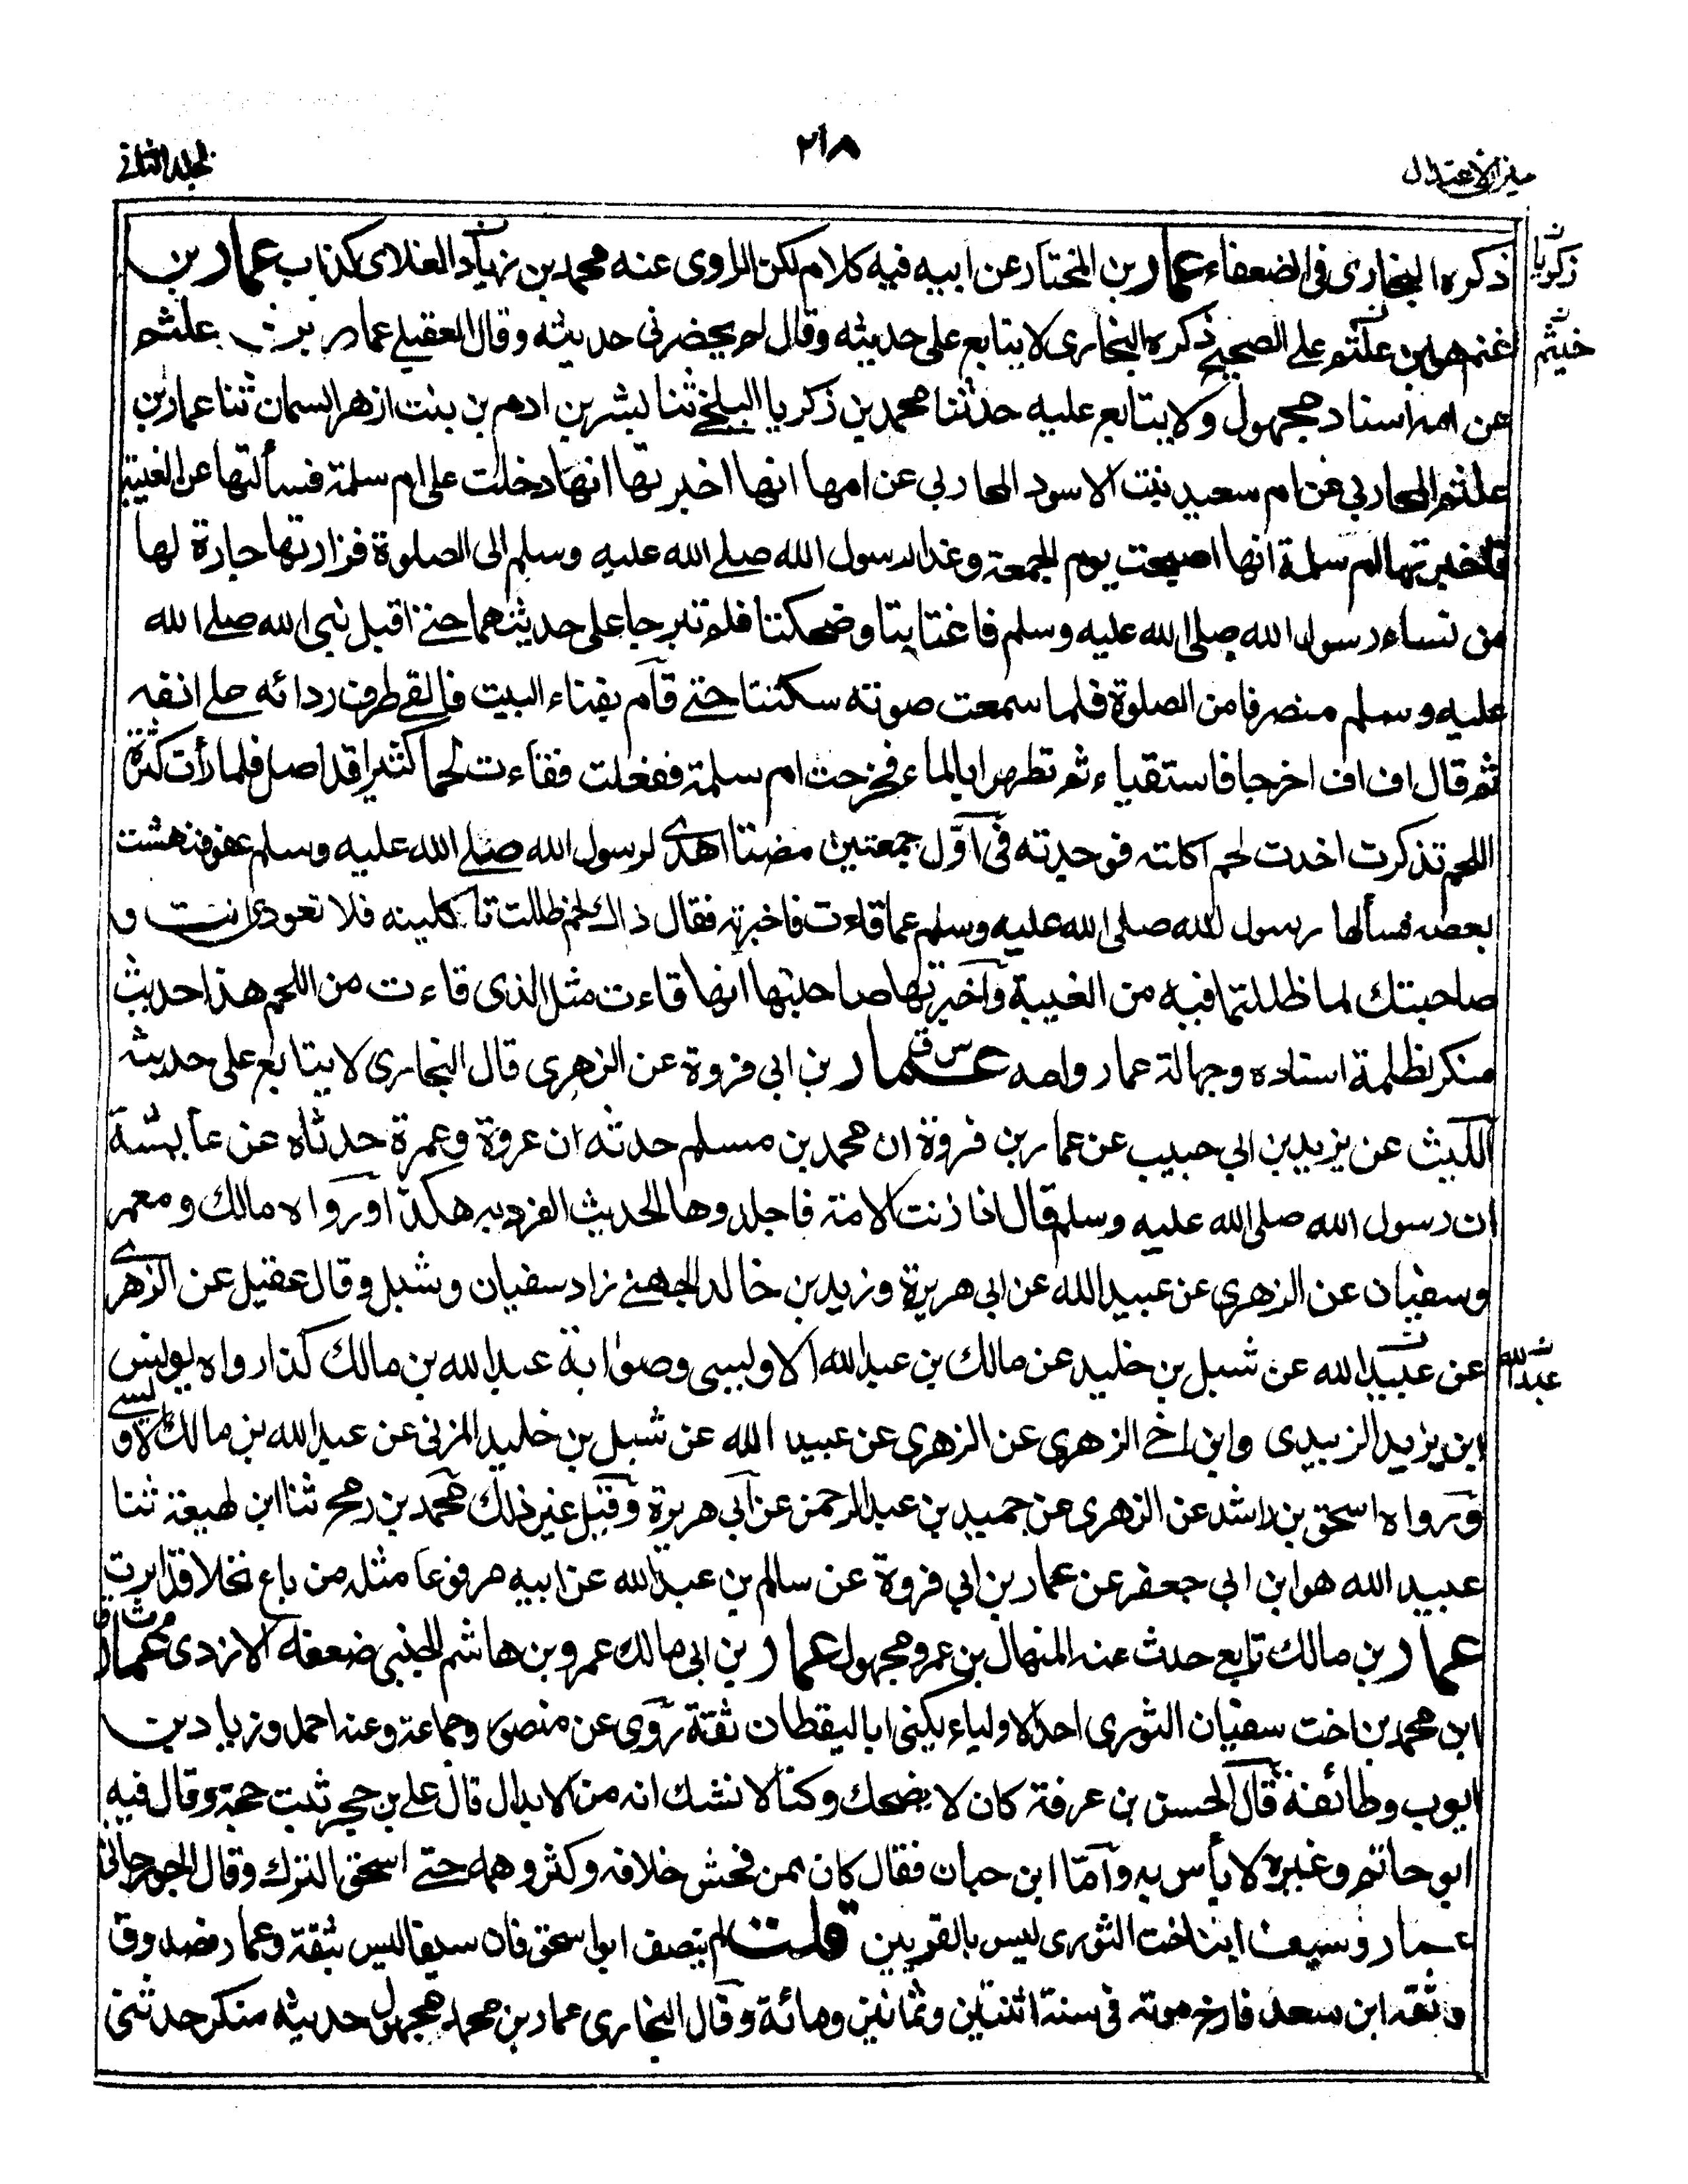 ميزان الاعتدال
٢١٨
المجلد الثاني
ذكره البخارى فى الضعفاء عمار بن المختار عن ابيه فيه كلام لكن الراوى عنه محمد بن زياد الغلابى كذاب عمار بن
زكريا
علثم على الصحيح ذكره البخارى لا يتابع على حديثه وقال لم يحضرنى حديثه وقال العقيلى عمار بن علثم
خيثم
عن امه اسناد مجهول ولا يتابع عليه حدثنا محمد بن زكريا البلخى ثنا بشر بن ادم بن بنت ازهر السمان ثنا عمار بن
علثم المحاربى عن ام سعيد بنت الاسود المحاربى عن امها انها اخبرتها انها دخلت على ام سلمة فسألتها عن الغيبة
فاخبرتها ام سلمة انها اصبحت يوم الجمعة وغدا رسول الله صلى الله عليه وسلم الى الصلوة فزارتها جارة لها
من نساء رسول الله صلى الله عليه وسلم فاغتابتا وضحكتا فلم تبرحا على حديثهما حتى اقبل نبى الله صلى الله
عليه وسلم منصرفا من الصلوة فلما سمعت صوته سكتتا حتى قام بفناء البيت فالقى طرف ردائه على انفه
ثم قال اف اف اخرجا فاستقياء ثم تطهرا بالماء فخرجت ام سلمة ففعلت فقاءت لحما كثيرا قد اصل فلما رأت كثرة
اللحم تذكرت احدث لحم اكلته فوجدته فى اول جمعتين مضتا اهدى لرسول الله صلى الله عليه وسلم عضو فنهشت
بعضه فسألها رسول الله صلى الله عليه وسلم عما قاءت فاخبرته فقال ذاك لحم ظللت تاكلينه فلا تعودى انت و
صاحبتك لما ظللتما فيه من الغيبة واخبرتها صاحبتها انها قاءت مثل الذى قاءت من اللحم هذا حديث
منكر لظلمة اسناده وجهالة عمار وامه عمار س ق بن ابى فروة عن الزهرى قال البخارى لا يتابع على حديثه
الليث عن يزيد بن ابى حبيب عن عمار بن فروة ان محمد بن مسلم حدثه ان عروة وعمرة حدثاه عن عايشة
ان رسول الله صلى الله عليه وسلم قال اذا زنت الامة فاجلدوها الحديث الفرد به هكذا ورواه مالك ومعمر
وسفيان عن الزهرى عن عبيد الله عن ابى هريرة وزيد بن خالد الجهنى زاد سفيان وشبل وقال عقيل عن الزهرى
عن عبيد الله عن شبل بن خليد عن مالك بن عبد الله الاوليسى وصوابه عبد الله بن مالك كذا رواه يونس
عبد الله
ابن يزيد الزبيدى وابن اخى الزهرى عن الزهرى عن عبيد الله عن شبل بن خليد المزنى عن عبد الله بن مالك الاويسى
ورواه اسحق بن راشد عن الزهرى عن حميد بن عبد الرحمن عن ابى هريرة وقيل غير ذلك محمد بن رمح ثنا ابن لهيعة ثنا
عبيد الله هو ابن ابى جعفر عن عمار بن ابى فروة عن سالم بن عبد الله عن ابيه مرفوعا مثله من باع نخلا قد ابرت
عمار بن مالك تابع حدث عنه المنهال بن عمرو مجهول عمار بن ابى مالك عمرو بن هاشم الجنبى ضعفه الازدى عمار م ت ق
ابن محمد بن اخت سفيان الثورى احد الاولياء يكنى ابا اليقظان ثقة روى عن منصور وجماعة وعنه احمد وزياد بن
ايوب وطائفة قال الحسن بن عرفة كان لا يضحك وكنا لا نشك انه من الابدال قال على بن حجر ثبت حجة وقال فيه
ابو حاتم وغيره لا بأس به واما ابن حبان فقال كان ممن فحش خلافه وكثر وهمه حتى استحق الترك وقال الجوزجانى
عمار وسيف ابنا اخت الثورى ليس بالقويين قلت لم ينصف ابو اسحق فان سيفا ليس بثقة وعمار فصدوق
وثقه ابن سعد فارخ موته فى سنة اثنتين وثمانين ومائة وقال البخارى عمار بن محمد مجهول حديثه منكر حدثنى